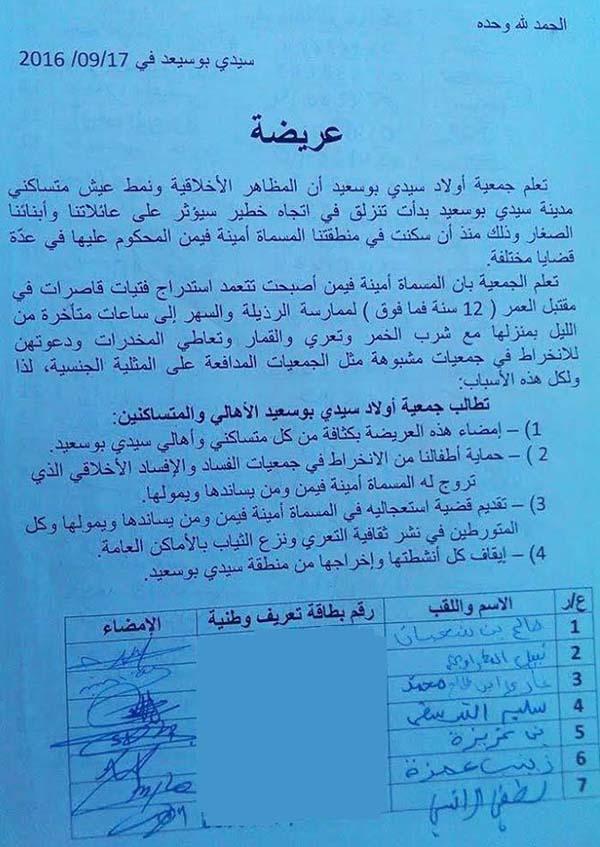 الحمد لله وحده
سيدي بوسيعد في 09/17/ 2016
عريضة
تعلم جمعية أولاد سيدي بوسعيد أن المظاهر الأخلاقية ونمط عيش متساكني
مدينة سيدي بوسعيد بدأت تنزلق في اتجاه خطير سيؤثر على عائلاتنا وأبنائنا
الصغار وذلك منذ أن سكنت في منطقتنا المسماة أمينة فيمن المحكوم عليها في عدّة
قضايا مختلفة.
تعلم الجمعية بان المسماة أمينة فيمن أصبحت تتعمد استدراج فتيات قاصرات في
مقتبل العمر ( 12 سنة فما فوق ) لممارسة الرذيلة والسهر إلى ساعات متأخرة من
الليل بمنزلها مع شرب الخمر وتعري والقمار وتعاطي المخدرات ودعوتهن
للانخراط في جمعيات مشبوهة مثل الجمعيات المدافعة على المثلية الجنسية، لذا
ولكل هذه الأسباب:
تطالب جمعية أولاد سيدي بوسعيد الأهالي والمتساكنين:
1) – إمضاء هذه العريضة بكثافة من كل متساكني وأهالي سيدي بوسعيد.
2 ) – حماية أطفالنا من الانخراط في جمعيات الفساد والإفساد الأخلاقي الذي
تروج له المسماة أمينة فيمن ومن يساندها ويمولها.
3) – تقديم قضية استعجاليه في المسماة أمينة فيمن ومن يساندها ويمولها وكل
المتورطين في نشر ثقافية التعري ونزع الثياب بالأماكن العامة.
4) – إيقاف كل أنشطتها وإخراجها من منطقة سيدي بوسعيد.
ع/ر الاسم واللقب رقم بطاقة تعريف وطنية الإمضاء
1 صالح بن شعبان
2 نبيل
3 محمد
4 سليم
5 بن عزيزة
6 زينب عمزة
7 لطفي